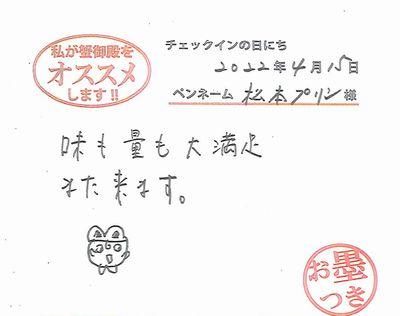 私が蟹御殿を
オススメ
します!!
チェックインの日にち
2022年4月15日
ペンネーム 松本プリン様
味も量も大満足
また来ます。
お墨
つき